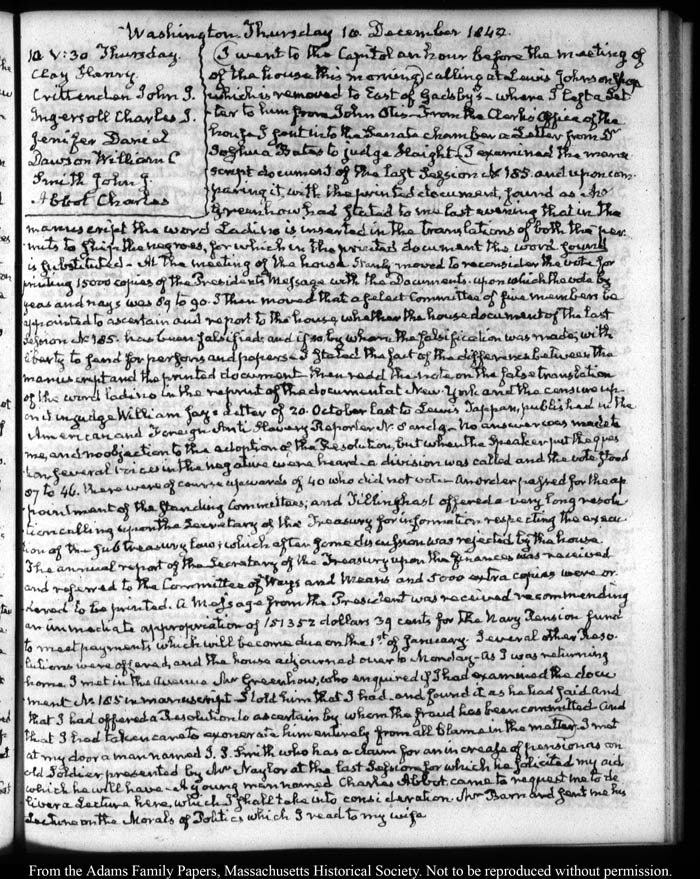 Washington Thursday 10. December 1840.
10. V:30 Thursday.
Clay Henry.
Crittenden John J.
Ingersoll Charles J.
Jenifer Daniel
Dawson William C
Smith John J.
Abbot Charles
I went to the Capitol an hour before the meeting of
of the house this morning, calling at Lewis Johnson's shop
which is removed to East of Gadsby's - where I left a Let-
ter to him from John Otis - From the Clerks Office of the
house I sent into the Senate chamber a Letter from Dr
Joshua Bates to judge Haight. I examined the manu-
script document of the last Session N. 185. and upon com-
paring it, with the printed document, found as Mr
Greenhow had stated to me last evening that in the
manuscript the word Ladino is inserted in the translations of both the per-
mits to ship the negroes, for which in the printed document the word sound
is substituted - At the meeting of the house Stanly moved to reconsider the vote for
printing 15000 copies of the President's Message with the Documents. upon which the vote by
yeas and nays was 89 to 90. I then moved that a select Committee of five members be
appointed to ascertain and report to the house, whether the house document of the last
Session N. 185. has been falsified, and if so by whom the falsification was made; with
liberty to send for persons and papers - I stated the fact of the difference between the
manuscript and the printed document then read the note on the false translation
of the word ladino in the reprint of the document at New-York and the censure up-
on it in judge William Jay's Letter of 20. October last to Lewis Tappan, published in the
American and Foreign Anti Slavery Reporter N. 8 and 9 - No answer was made to
me, and no objection to the adoption of the Resolution, but when the Speaker put the ques-
tion several voices in the negative were heard - a division was called and the vote stood
87 to 46. there were of course upwards of 40 who did not vote - An order passed for the ap-
pointment of the standing Committees; and Tillinghast offered a very long resolu-
tion calling upon the Secretary of the Treasury for information respecting the execu-
tion of the sub treasury law; which after some discussion was rejected by the house.
The annual report of the Secretary of the Treasury upon the finances was received
and referred to the Committee of Ways and Means and 5000 extra copies were or-
dered to be printed. A Message from the President was received recommending
an immediate appropriation of 151352 dollars 39 cents for the Navy Pension fund
to meet payments which will become due on the 1st of January. Several other Reso-
lutions were offered, and the house adjourned over to Monday - As I was returning
home I met in the Avenue Mr Greenhow, who enquired if I had examined the docu-
ment N. 185 in manuscript - I told him that I had, and found it as he had said And
that I had offered a Resolution to ascertain by whom the fraud has been committed - And
that I had taken care to exonerate him entirely from all blame in the matter - I met
at my door a man named J. J. Smith who has a claim for an increase of pension as an
old Soldier presented by Mr Naylor at the last Session, for which he solicited my aid,
which he will have - A young man named Charles Abbot came to request me to de-
liver a Lecture here, which I shall take into consideration. Mr Barnard sent me his
Lecture on the Morals of Politics which I read to my wife
From the Adams Family Papers, Massachusetts Historical Society. Not to be reproduced without permission.